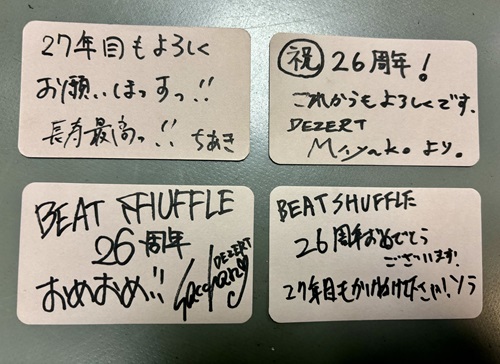 27年目もよろしく
お願いしまっすっ!!
長寿最高っ!! ちあき
祝 26周年!
これからもよろしくです.
DEZERT
Miyakoより。
BEAT SHUFFLE
26周年
おめおめ!!
DEZERT
BEAT SHUFFLE
26周年おめでとう
ございます!
27年目もかけぬけて下さい! ソラ